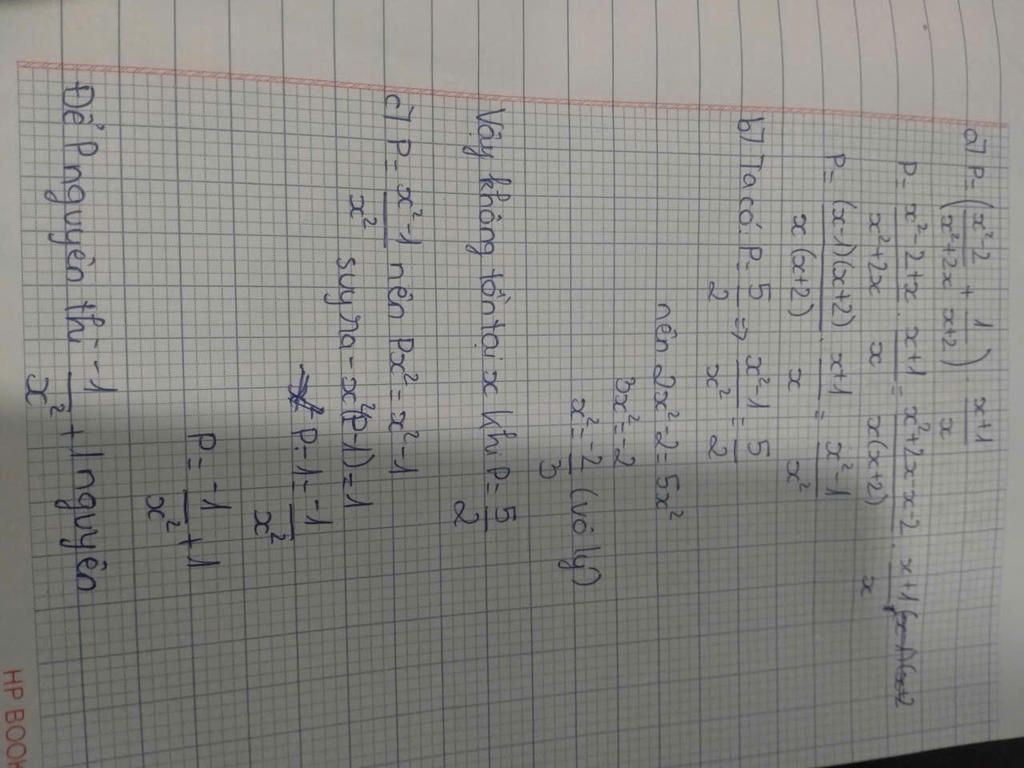 a) P = (x²-2/x²+2x + 1/x+2) . x+1/x
P = x²-2+x/x²+2x . x+1/x = x²+2x-x-2/x(x+2) . x+1/x
P = (x-1)(x+2)/x(x+2) . x+1/x = x²-1/x²
b) Ta có: P = 5/2 => x²-1/x² = 5/2
nên 2x²-2 = 5x²
3x² = -2
x² = -2/3 (vô lý)
Vậy không tồn tại x khi P = 5/2
c) P = x²-1/x² nên Px² = x²-1
suy ra -x²(P-1) = 1
P-1 = -1/x²
P = -1/x² + 1
Để P nguyên thì -1/x² + 1 nguyên
HP BOOK